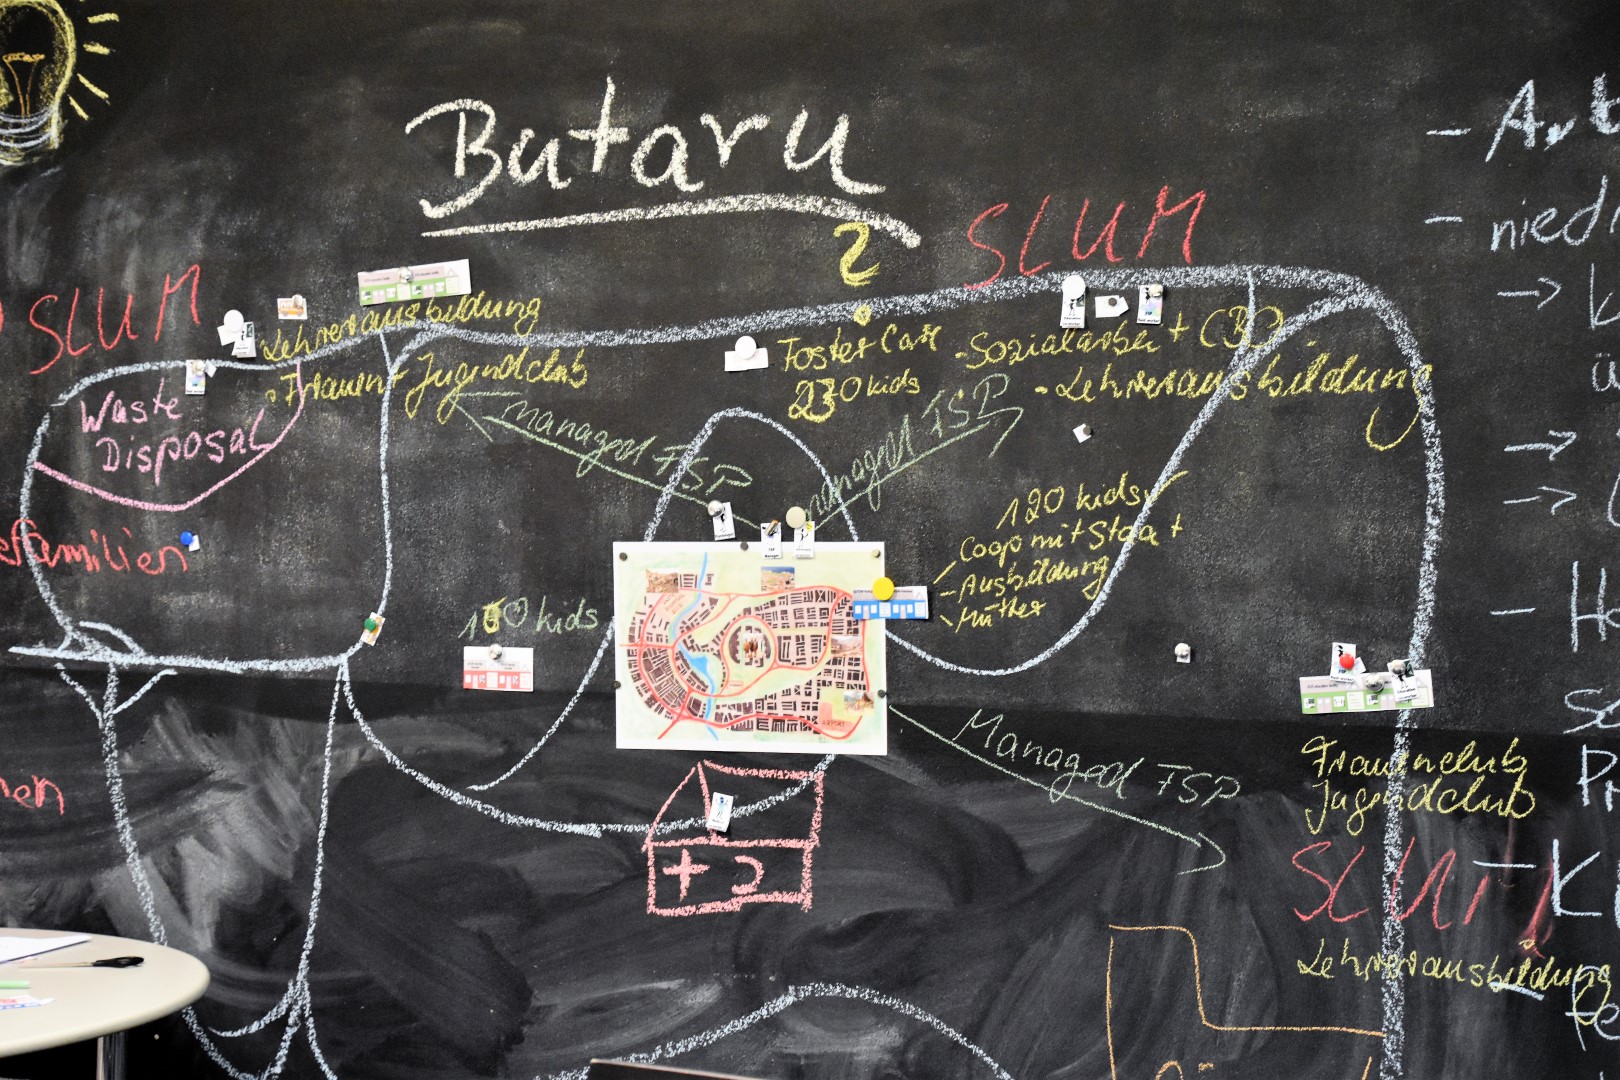 Butaru
?
SLUM
SLUM
Lehrerausbildung
- Frauen + Jugendclub
Waste
Disposal
Foster Care
230 kids
- Sozialarbei + CBO
- Lehrerausbildung
managed FSP
managed FSP
120 kids
Coop mit Staat
- Ausbildung
Mütter
efamilien
kids
Managed FSP
Frauenclub
Jugendclub
+ 2
SLUM
Lehrerausbildung
AIRPORT
nen
- niedr